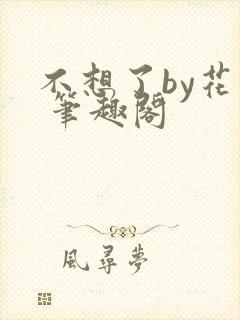 不想了by花
筆趣閣
風尋夢